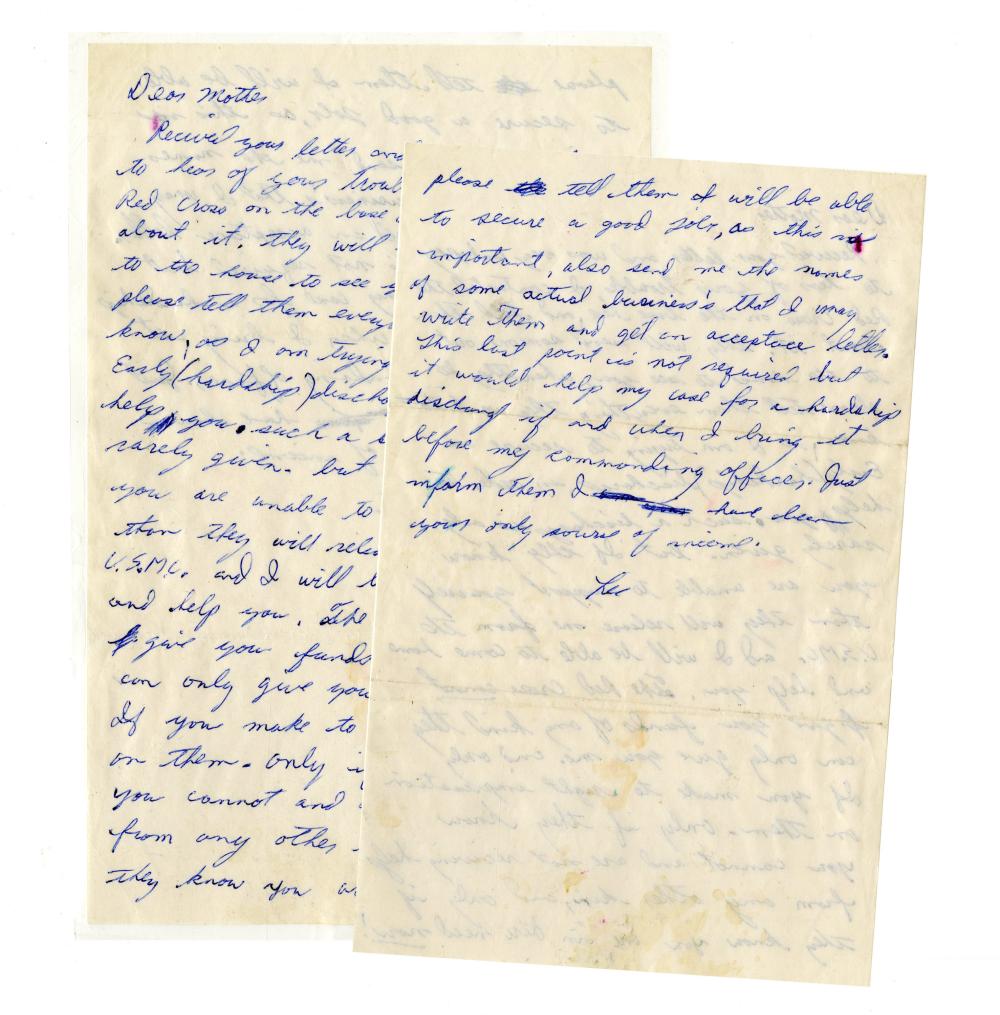 Dear Mother
Recived your letter and
to hear of your troub
Red Cross on the base
about it. They will
to the house to see y
please tell them every
know, as I am trying
Early (hardship) discha
help you. such a
rarely given. but
you are unable to
than they will relea
U.S.M.C. and I will b
and help you. The
give you funds
can only give you
If you make to
on them. only i
you cannot and
from any other
they know you ar
please tell them I will be able
to secure a good job, as this is
important, also send me the names
of some actual business's that I may
write them and get an acceptace letter.
This last point is not required but
it would help my case for a hardship
discharg if and when I bring it
before my commanding officer. Just
inform them I have been
your only sourse of income.
Lee